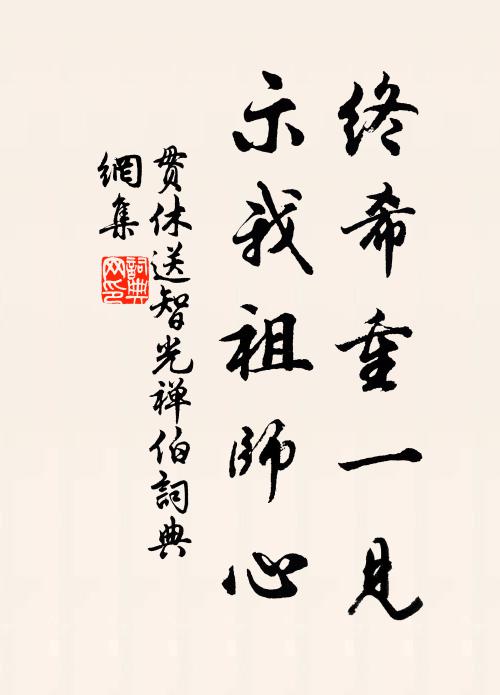 终希重一見
示我祖師心
贯休送智光禅伯詞典
網集
詞典
网印